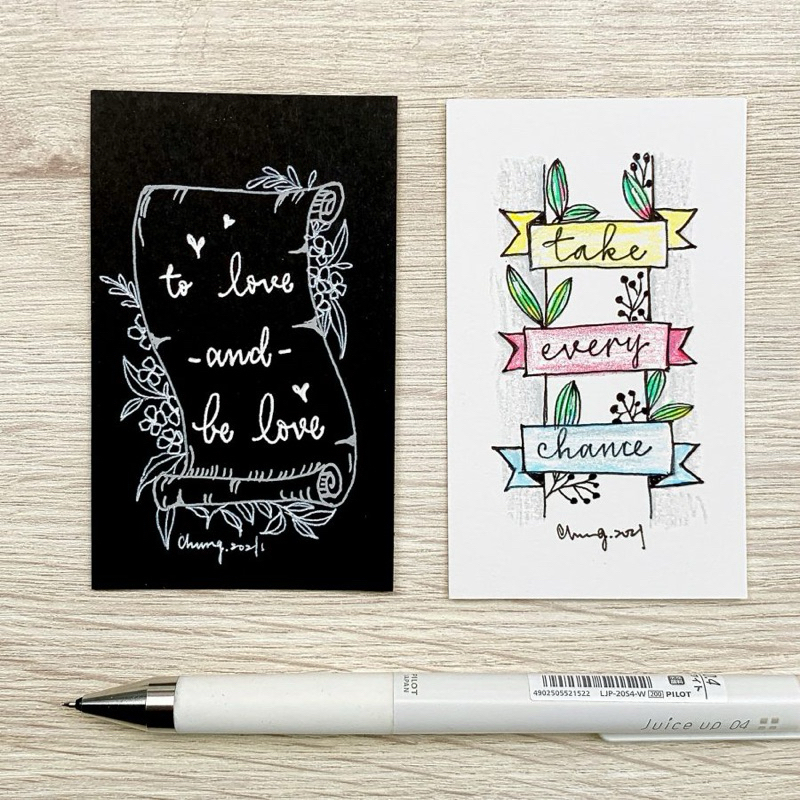 to love
-and-
be love
Chung.2021
take
every
chance
Chung.2021
PILOT
JAPAN
4902505521522 LJP-20S4-W 200 PILOT
Juice up 04